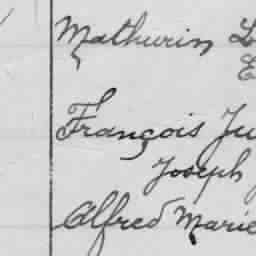 Mathurin L
E
François Ju
Joseph
Alfred Marie